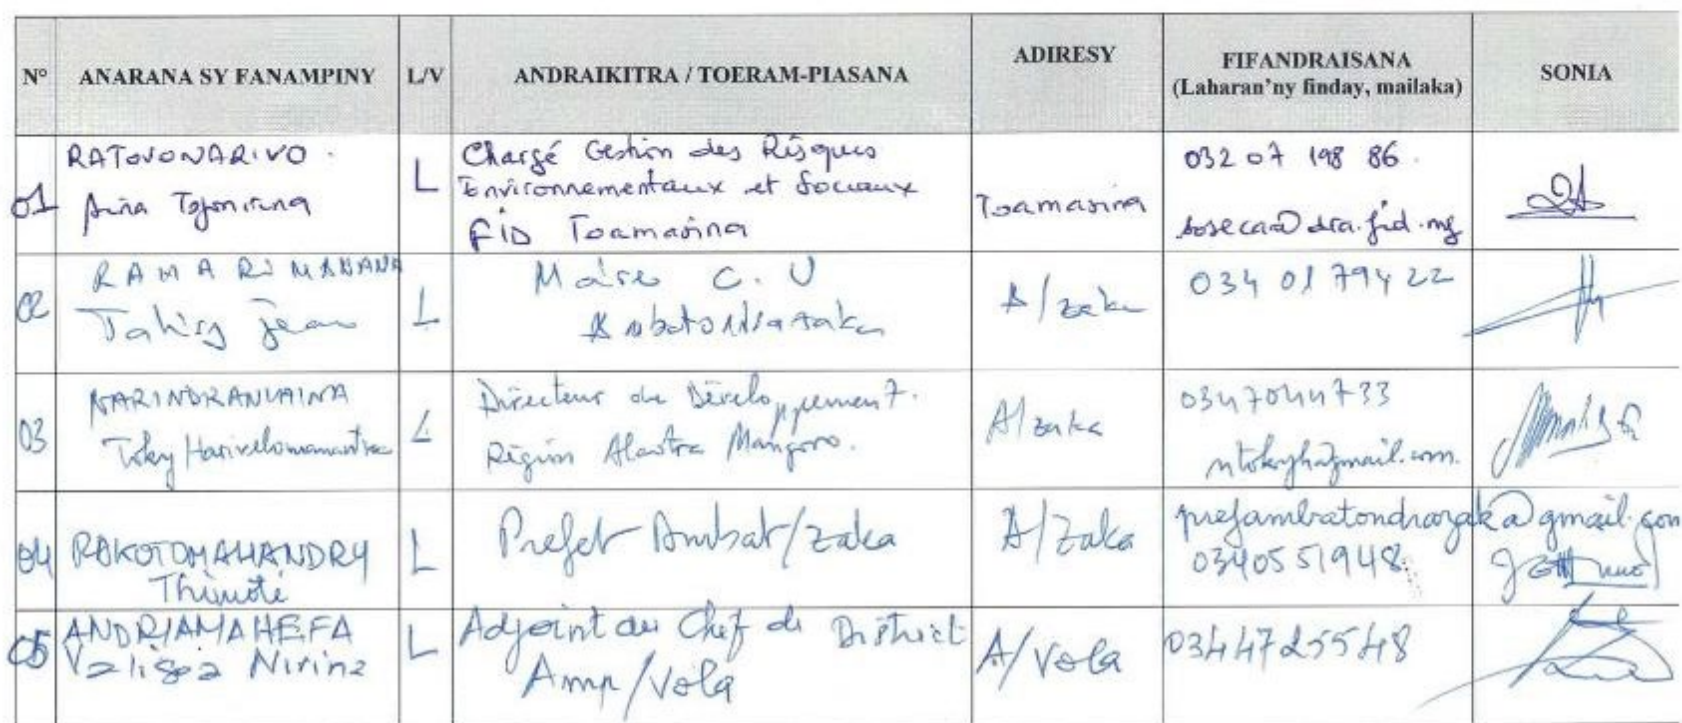 N° ANARANA SY FANAMPINY L/V ANDRAIKITRA / TOERAM-PIASANA ADIRESY FIFANDRAISANA (Laharan'ny finday, mailaka) SONIA
01 RATOVONARIVO L Chargé Gestion des Risques Environnementaux et Sociaux FID Toamasina Toamasina 032 07 198 86
02 RAMARIMANANA Tahiry Jean L Maire C.U Ambatondrazaka A/zaka 034 01 794 22
03 Toky L Directeur de Développement. Région Alaotra Mangoro. A/zaka 0347044733 ntokyh@gmail.com.
04 RAKOTOMAHANDRY Thimoté L Prefet Ambat/zaka A/zaka prefambatondrazaka@gmail.com 0340551948
05 ANDRIAMAHEFA Nirina L Adjoint au Chef de District Amp/Vola A/Vola 0344725548